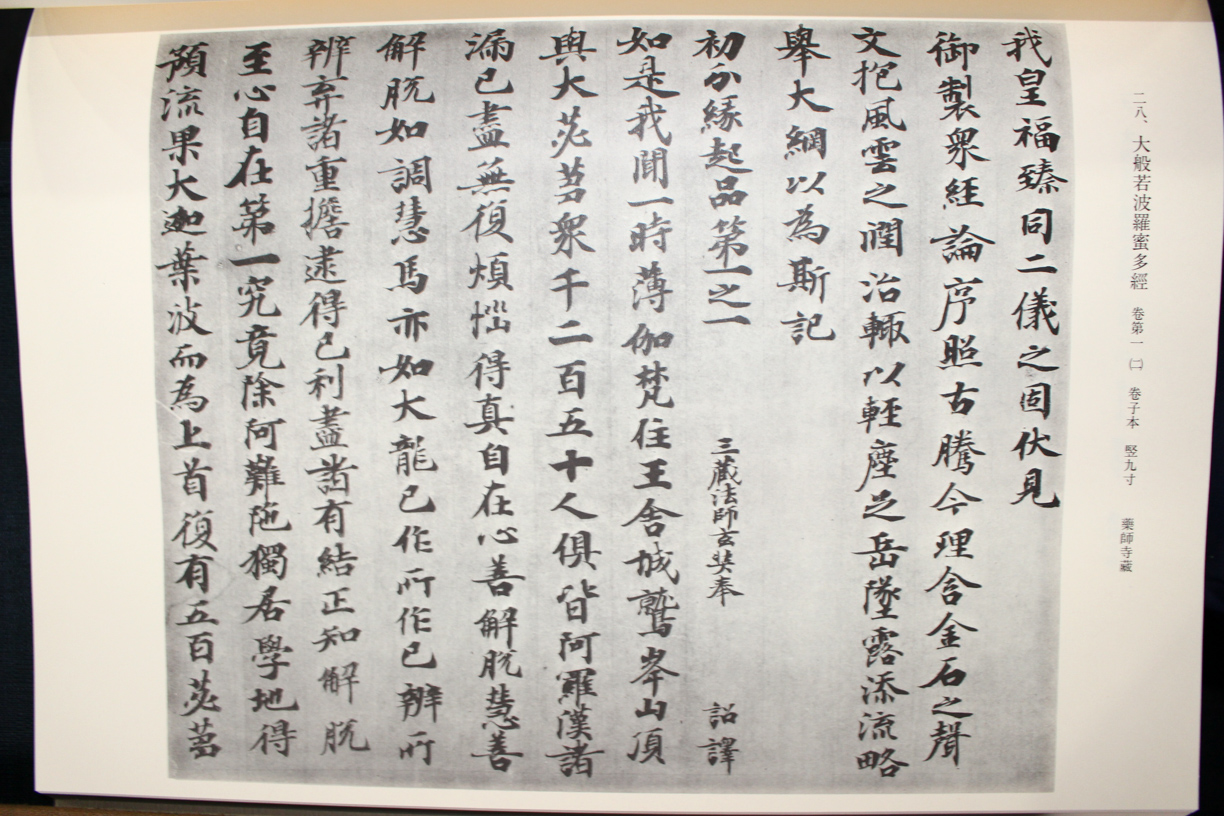 二八、大般若波羅蜜多經 卷第一 ㈡ 卷子本 竪九寸 藥師寺藏
我皇福臻同二儀之固伏見
御製衆經論序照古騰今理含金石之聲
文抱風雲之潤治輙以輕塵足岳墜露添流略
舉大綱以為斯記
初分緣起品第一之一 三藏法師玄奘奉 詔譯
如是我聞一時薄伽梵住王舍城鷲峯山頂
與大苾芻衆千二百五十人俱皆阿羅漢諸
漏已盡無復煩惱得真自在心善解脫慧善
解脫如調慧馬亦如大龍已作所作已辦所
辦弃諸重擔逮得己利盡諸有結正知解脫
至心自在第一究竟除阿難陁獨居學地得
預流果大迦葉波而為上首復有五百苾芻